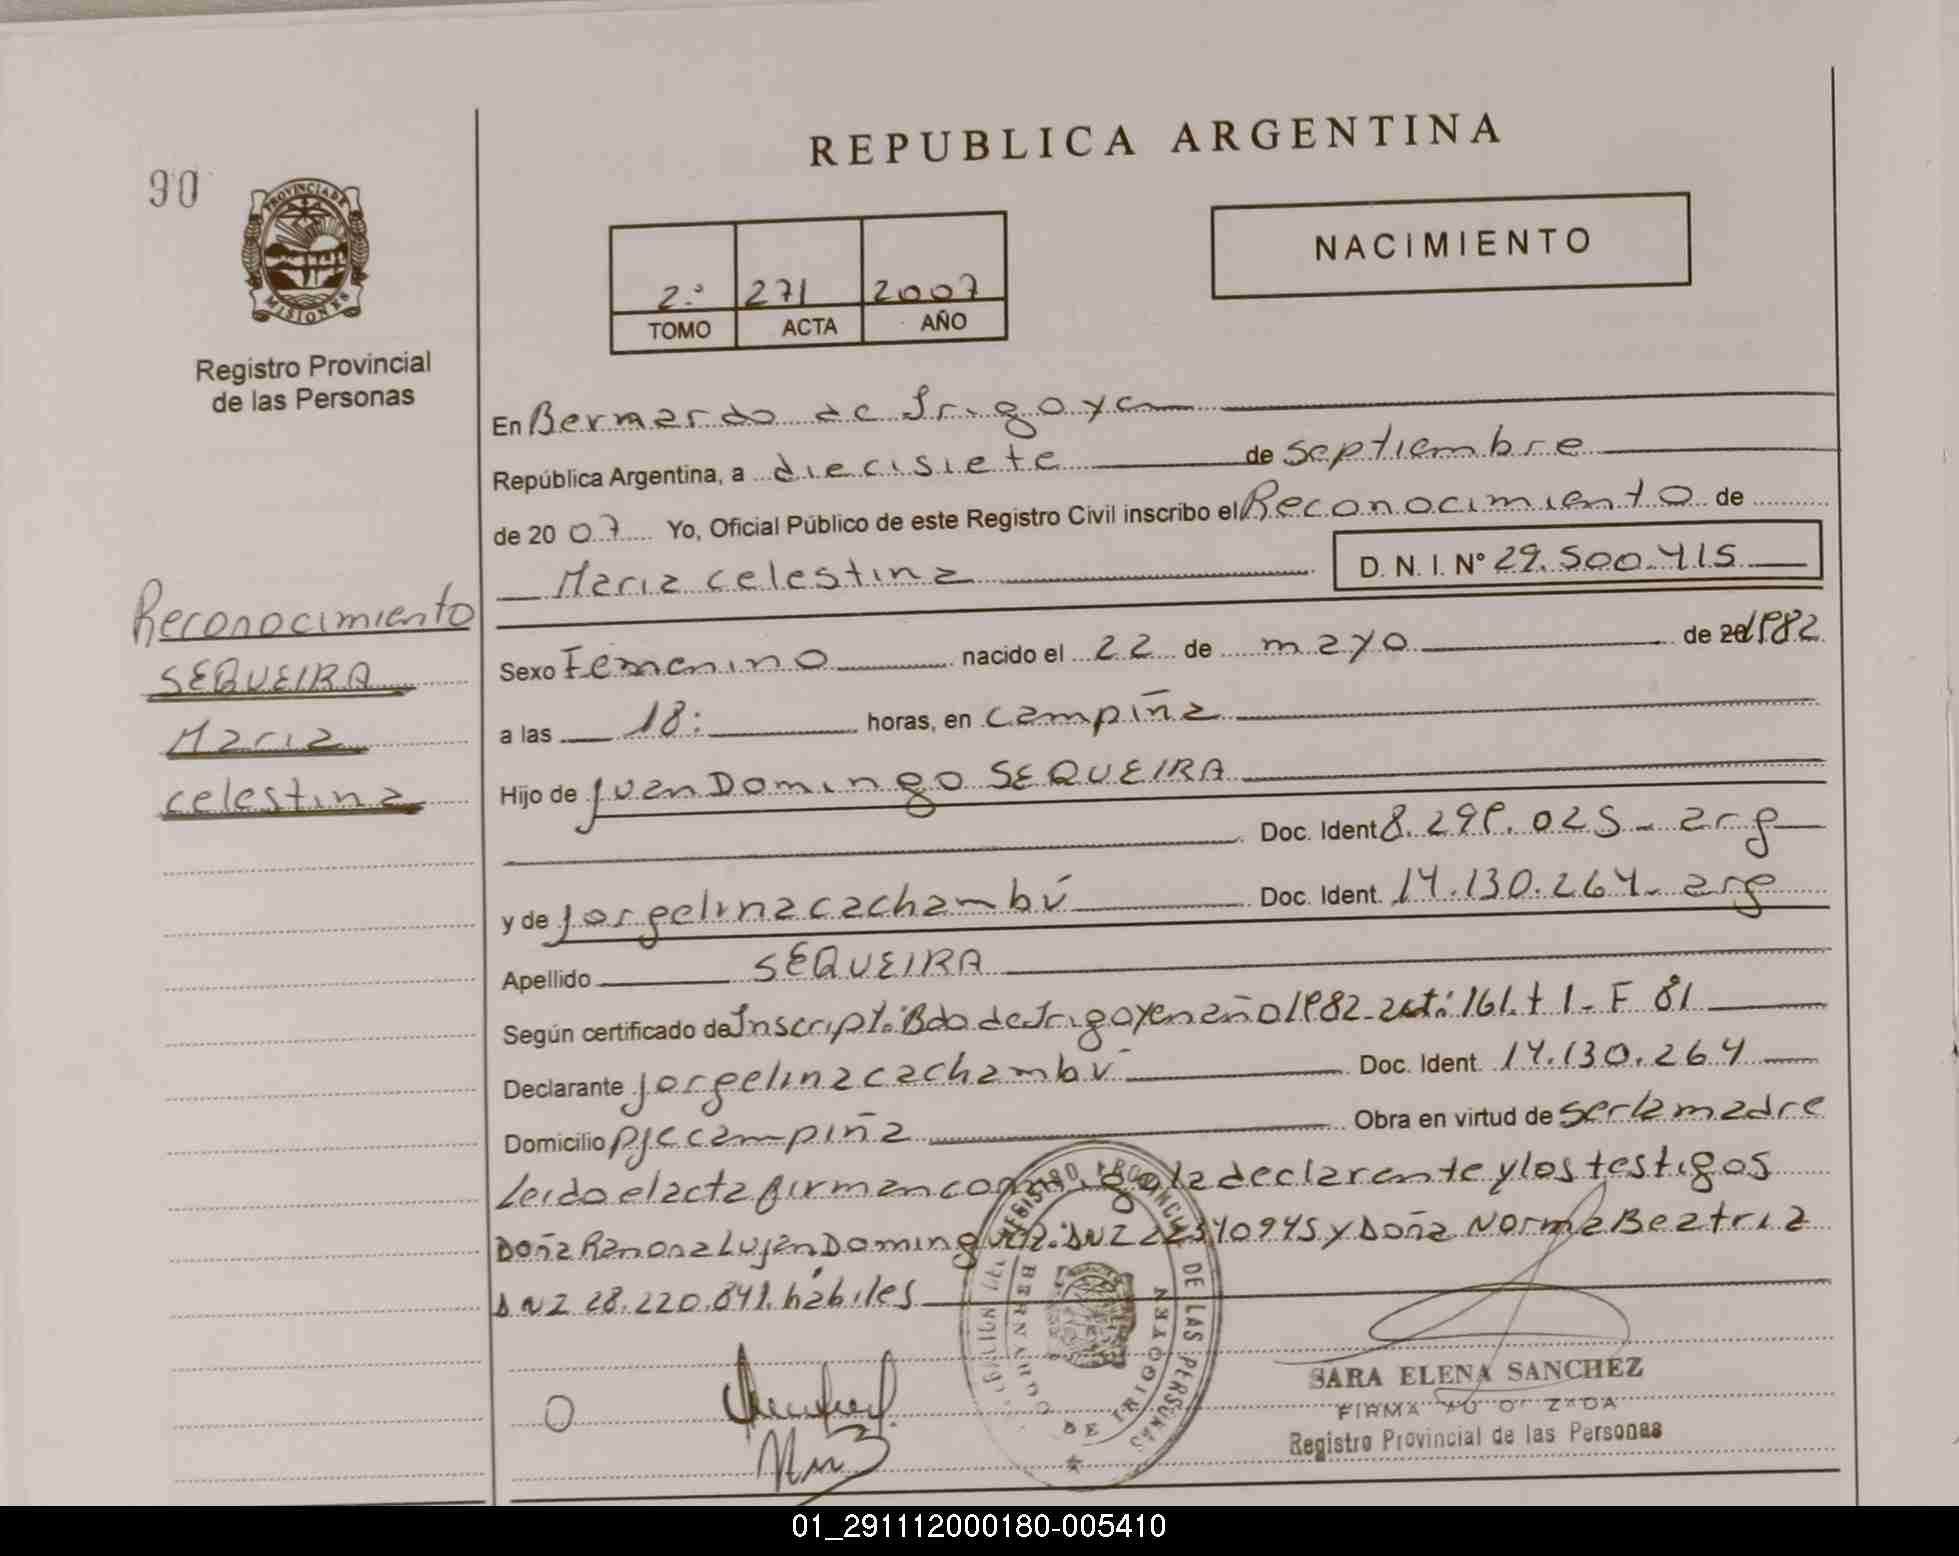 REPUBLICA ARGENTINA
90
PROVINCIA DE
MISIONES
Registro Provincial
de las Personas
NACIMIENTO
2º 271 2007
TOMO ACTA AÑO
En Bernardo de Irigoyen
República Argentina, a diecisiete de septiembre
de 2007 Yo, Oficial Público de este Registro Civil inscribo el Reconocimiento de
Maria celestina D. N. I. Nº 29.500.415
Reconocimiento
SEQUEIRA
Maria
celestina
Sexo Femenino nacido el 22 de mayo de 20 1982
a las 18: horas, en campiña
Hijo de Juan Domingo SEQUEIRA
Doc. Ident 8.299.025 - arg
y de Jorgelina cachambú Doc. Ident. 14.130.264 - arg
Apellido SEQUEIRA
Según certificado de Inscript. Bdo de Irigoyen año 1982 - act: 161. t 1 - F 81
Declarante Jorgelina cachambú Doc. Ident. 14.130.264
Domicilio pje campiña Obra en virtud de ser la madre
Leido el acta firman conmigo la declarante y los testigos
Doña Ramona Lujan Dominguez. DNI 22340945 y Doña Norma Beatriz
DNI 28.220.841. hábiles
REGISTRO PROVINCIAL DE LAS PERSONAS
BERNARDO DE IRIGOYEN
SARA ELENA SANCHEZ
FIRMA AUTORIZADA
Registro Provincial de las Personas
01_291112000180-005410